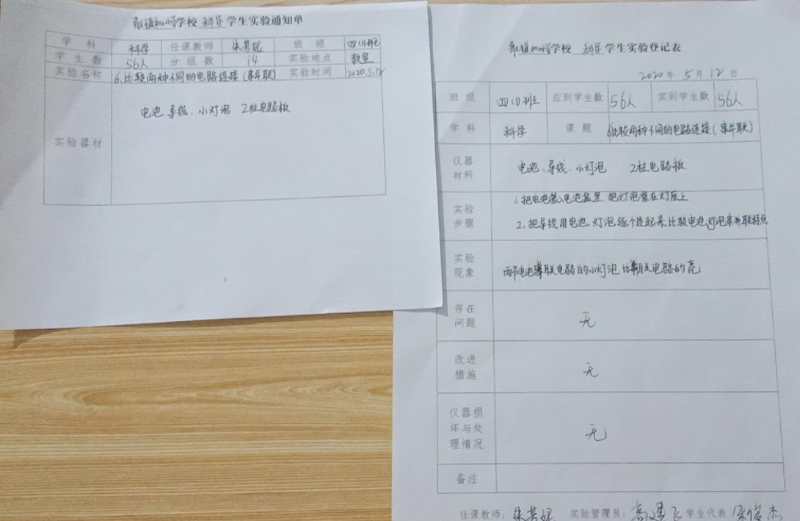 学校 科学 学生实验通知单
学 科 科学 任课教师 班 级 四(1)班
学 生 数 56人 分 组 数 14 实验地点 教室
实验名称 6.比较两种不同的电路连接(串并联) 实验时间 2020.5.12
实验器材 电池 导线 小灯泡 2粒电路板
学校 科学 学生实验登记表
2020 年 5 月 12 日
班 级 四(1)班 应到学生数 56人 实到学生数 56人
学 科 科学 课 题 6比较两种不同的电路连接(串并联)
仪器材料 电池、导线、小灯泡 2粒电路板
实验步骤 1.把电池装入电池盒里 把灯泡装在灯座上
2.把导线用电池 灯泡逐个连起来,比较电池,灯泡串并联特点
实验现象 两节电池串联电路的小灯泡比并联电路的亮
存在问题 无
改进措施 无
仪器损坏与处理情况 无
备注
任课教师: 实验管理员: 学生代表